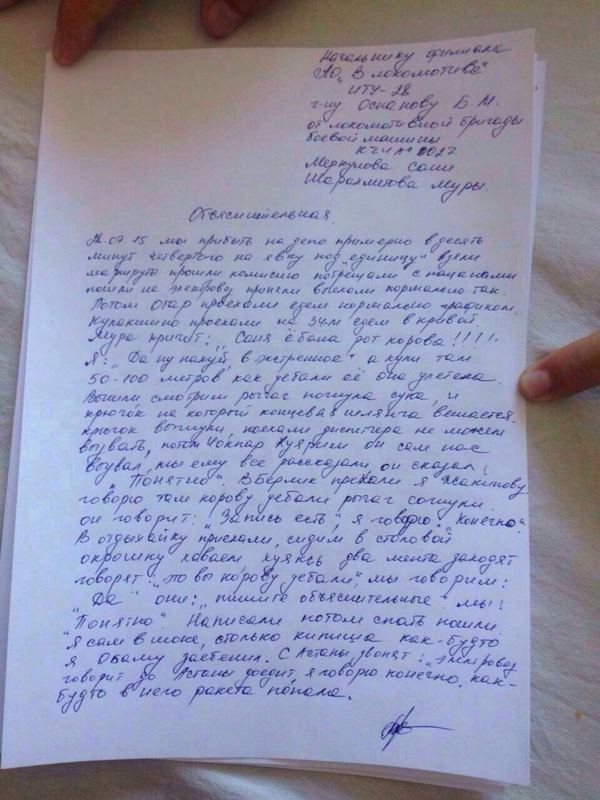 Начальнику филиала
АО „Локомотив"
ПТУ-28
г-ну Оспанову Б.М.
от локомотивной бригады
боевой машины
КЧИ № 0027
Меркулова Сани.
Шарахметова Муры.
Объяснительная.
07.15 мы прибыть на депо примерно в десять
минут четвертого на явку под „единицу" взяли
маршруты прошли комиссию потрещали с пацанами
пошли на электрову приняли выехали нормально так.
Потом Отар проехали едем нормально графиком.
Кулакшино проехали на 34-м едем в кривой.
Мура кричит: „Саня ёбана рот корова!!!!"
Я: „Да ну нахуй, в экстренное" а хули там
50-100 метров как уебали её она улетела.
Вышли смотрим рычаг погнула сука, и
крючок на который концевая шлянга вешается.
крючок выгнули, поехали диспетчера не можем
вызвать, потом Чокпар хуярим он сам нас
вызвал, мы ему все рассказали, он сказал:
„Понятно". В Берлик прехали я Жакипову
говорю там корову уебали рычаг согнули.
он говорит: „Запись есть", я говорю: „Конечно".
В отдыхайку приехали, сидим в столовой
окрошку хаваем хуяксь два мента заходят
говорят: „это вы корову уебали", мы говорим:
„Да" они: „пишите объяснительные" мы:
„Понятно". Написали потом спать пошли.
Я сам в шоке, столько кипиша как-будто
я Обаму заебенил. С Астаны звонят: „Электровоз
говорит до Астаны доедит, я говорю конечно, как-
будто в него ракета попала.